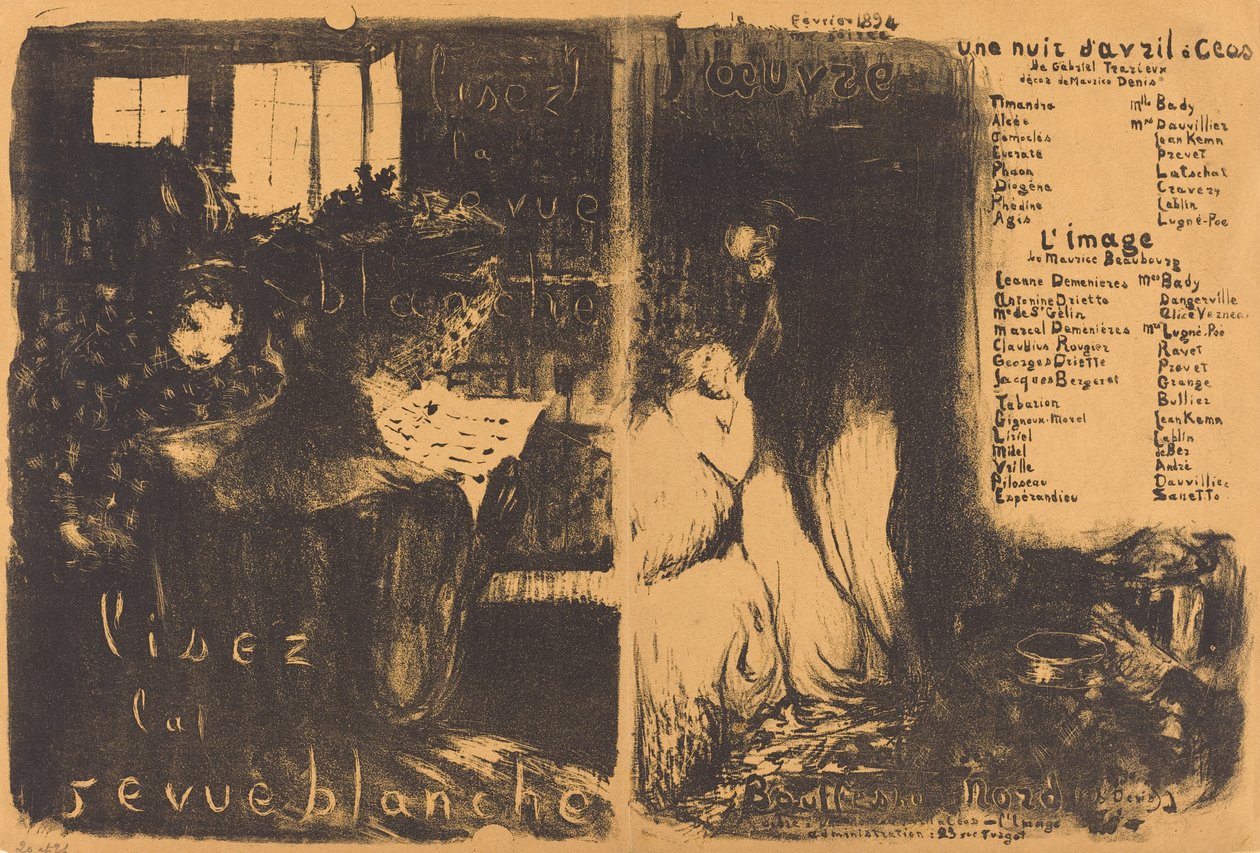 lisez
la
revue
blanche
lisez
la
revue blanche
le Février 1894
l'œuvre
une nuit d'avril à Céos
de Gabriel Trarieux
décor de Maurice Denis
Timandra Mlle Bady
Alcée Mme Dauvillier
Jean Kemn
Eucrate Prevet
Phaon Latschat
Diogène Cravery
Phédine Lablin
Agis Lugné-Poe
L'image
de Maurice Beaubourg
Jeanne Demenieres Mmes Bady
Antonine Driette Dangerville
Me de St Gélin Alice Verneau
Marcel Demenières Mrs Lugné-Poé
Claudius Rougier Ravet
Georges Driette Prevet
Jacques Bergeret Grange
Tabarion Bullier
Gignoux-Morel Jean Kemn
Liriel Lablin
Midel de Bez
Vrille André
Piloseau Dauvillier
Espérandieu Sanetto
Nord
L'Image
administration : 23 rue Turgot
20 et 21